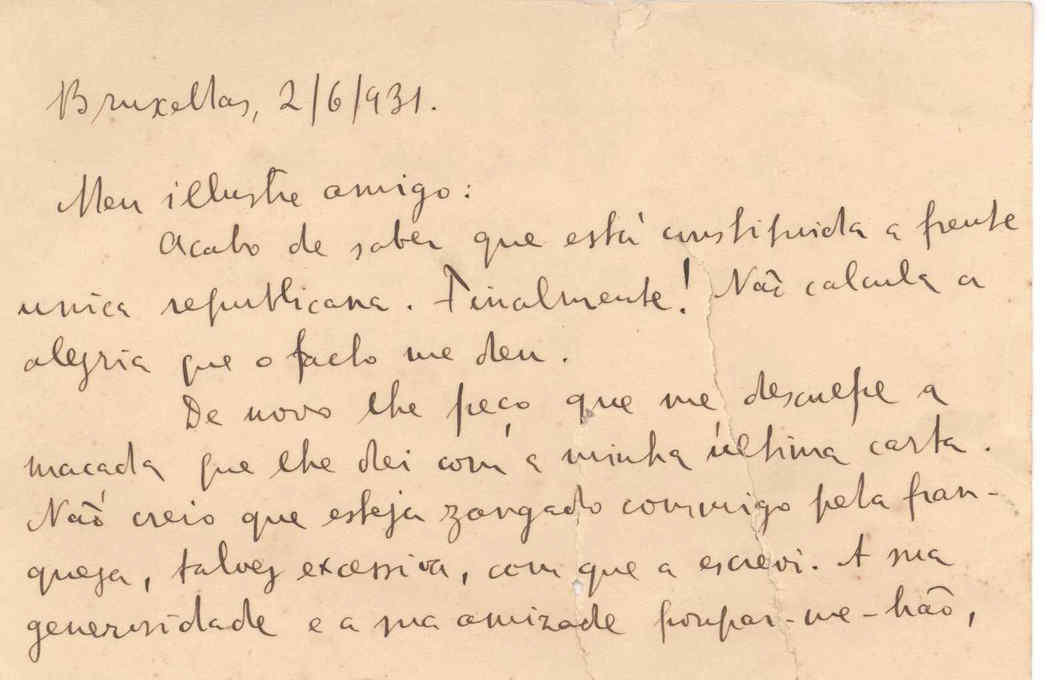 Bruxellas, 2/6/931.
Meu illustre amigo:
Acabo de saber que está constituida a frente
unica republicana. Finalmente! Não calcula a
alegria que o facto me deu.
De novo lhe peço que me desculpe a
maçada que lhe dei com a minha última carta.
Não creio que esteja zangado commigo pela fran-
queza, talvez excessiva, com que a escrevi. A sua
generosidade e a sua amizade poupar-me-hão,